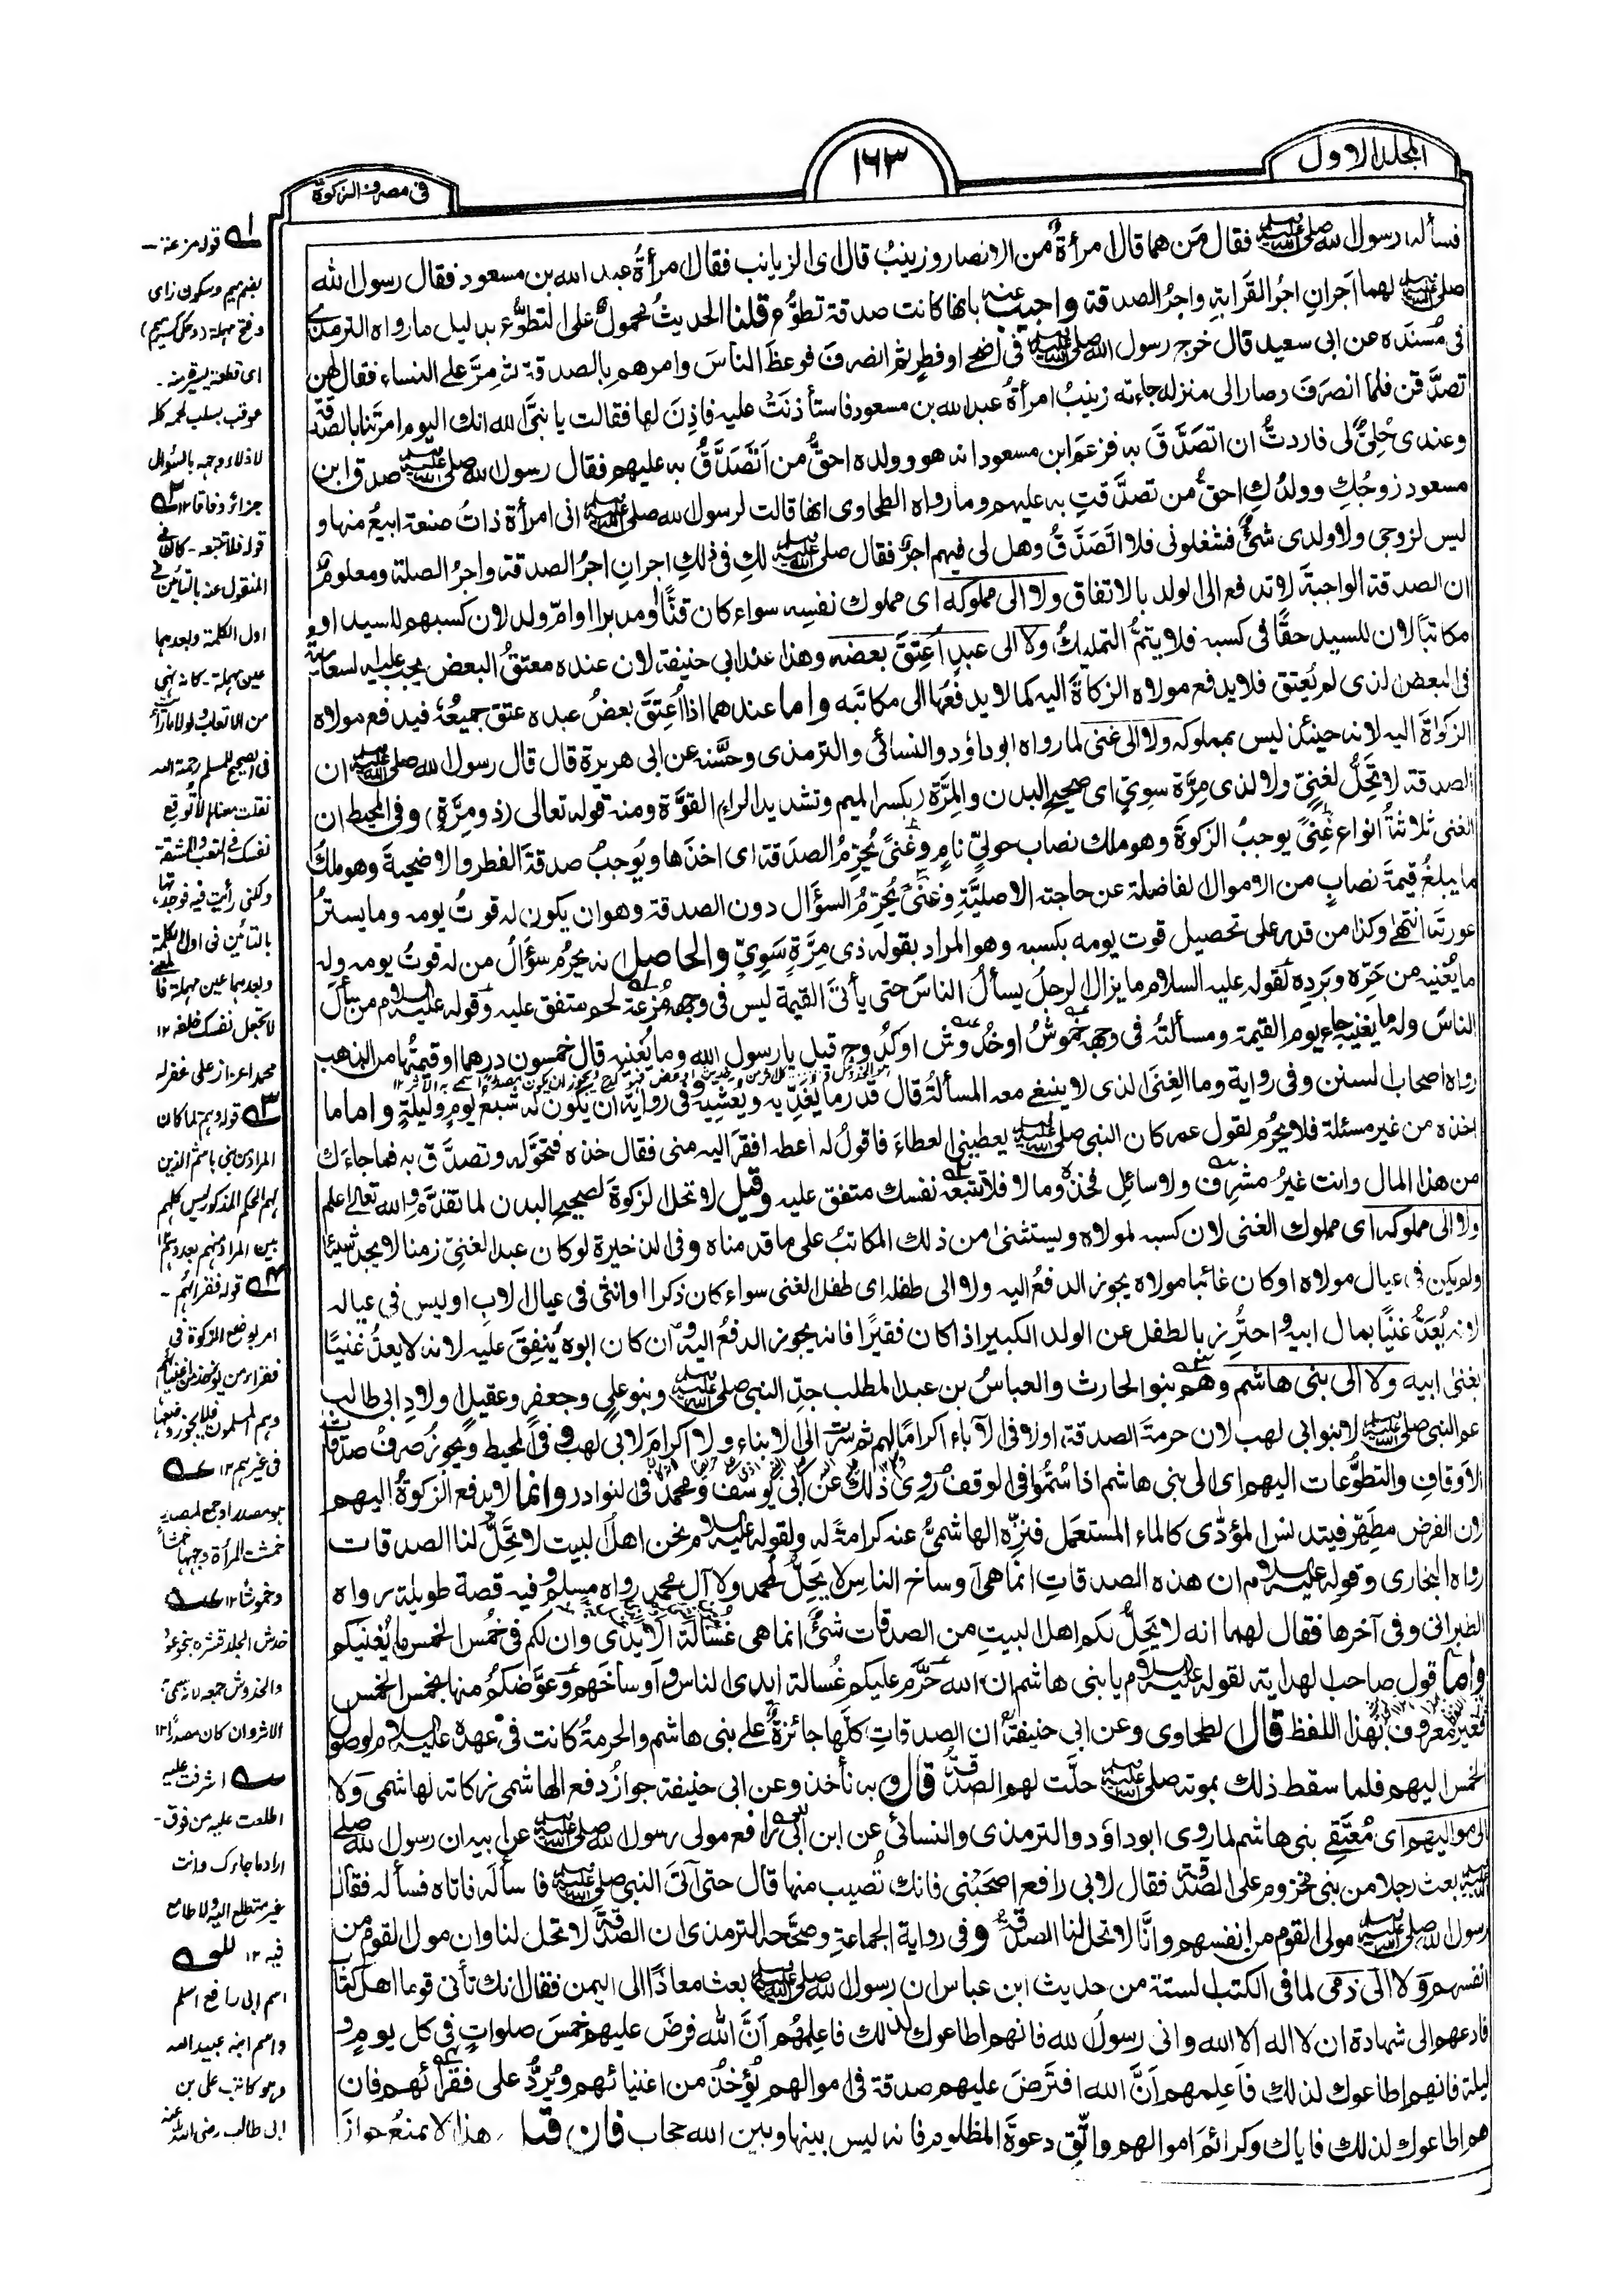 المجلد الاول
١٦٣
فی مصرف الزکوة
فسأله رسول الله صلى الله عليه وسلم فقال مَن هما قال امرأةٌ من الانصار وزينبُ قال ای الزيانب فقال امرأةُ عبد الله بن مسعود فقال رسول الله
صلى الله عليه وسلم لهما اَجرانِ اجرُ القَرابةِ واجرُ الصدقة واجيب عنه بانها كانت صدقة تطوُّع قلنا الحديثُ محمولٌ على التطوُّع بدليل ما رواه الترمذی
فی مُسنَده عن ابی سعيد قال خرج رسول الله صلى الله عليه وسلم فی اضحى او فطرٍ ثم انصرفَ فوعظَ الناسَ وامرهم بالصدقة ثم مرَّ على النساء فقال لهن
تصدَّقن فلمّا انصرَفَ وصار الى منزله جاءته زينبُ امرأةُ عبد الله بن مسعود فاستأذنَتْ عليه فاذِنَ لها فقالت يا نبیَّ الله انك اليوم امرتَنا بالصدقة
وعندی حُلِیٌّ لی فاردتُّ ان اتصَدَّقَ به فزعم ابن مسعود انه هو وولده احقُّ من اَتَصَدَّقُ به عليهم فقال رسول الله صلى الله عليه وسلم صدق ابن
مسعود زوجُكِ وولدُكِ احقُّ من تصدَّقتِ به عليهم وما رواه الطحاوی انها قالت لرسول الله صلى الله عليه وسلم انی امرأة ذاتُ صنعة ابيعُ منها و
ليس لزوجی ولا ولدی شیٌٔ فشغلونی فلا اتَصَدَّقُ وهل لی فيهم اجرٌ فقال صلى الله عليه وسلم لكِ فی ذلكِ اجران اجرُ الصدقة واجرُ الصلة ومعلومٌ
ان الصدقة الواجبةَ لا تدفع الى الولد بالاتفاق ولا الى مملوكه ای مملوك نفسِه سواء كان قنًّا او مدبرا او امّ ولد لان كسبهم للسيد او
مكاتبًا لان للسيد حقًّا فی كسبه فلا يتمُّ التمليكُ ولا الى عبدٍ اُعتِقَ بعضه وهذا عند ابی حنيفة لان عنده معتقُ البعض يجب عليه السعاية
فی البعض الذی لم يُعتق فلا يدفع مولاه الزكاةَ اليه كما لا يدفعُها الى مكاتبه واما عندهما اذا اُعتِقَ بعضُ عبده عتق جميعُه فيدفع مولاه
الزكوٰةَ اليه لانه حينئذ ليس بمملوكه ولا الى غنی لما رواه ابو داؤد والنسائی والترمذی وحسَّنه عن ابی هريرة قال قال رسول الله صلى الله عليه وسلم ان
الصدقة لا تَحِلُّ لغنیّ ولا لذی مِرَّة سوِیّ ای صحيح البدن والمِرَّة (بكسر الميم وتشديد الراء القوَّة ومنه قوله تعالى (ذو مِرَّة) وفی المحيط ان
الغنى ثلاثةُ انواع غِنًى يوجبُ الزكوةَ وهو ملك نصاب حولیّ نامٍ وغنًى يُحرِّمُ الصدقة ای اخذها ويُوجبُ صدقةَ الفطر والاضحيةَ وهو ملكُ
ما يبلغُ قيمةَ نصابٍ من الاموال الفاضلة عن حاجته الاصليَّةِ وغنًى يُحرِّمُ السؤال دون الصدقة وهو ان يكون له قوتُ يومه وما يستُرُ
عورتَه انتهى وكذا من قدر على تحصيل قوت يومه بكسبه وهو المراد بقوله ذی مِرَّةٍ سَوِیّ والحاصل انه يحرُم سؤالُ من له قوتُ يومه وله
ما يُغنيه من حَرِّه وبَردِه لقوله عليه السلام ما يزال الرجلُ يسألُ الناسَ حتى يأتیَ القيمة ليس فی وجهه مُزعة لحم متفق عليه وقوله عليه السلام من سأل
الناسَ وله ما يغنيه جاء يوم القيمة ومسألتُه فی وجهه خموشٌ او خُدُوش او كُدُوح قيل يا رسول الله وما يُغنيه قال خمسون درهما او قيمتُها من الذهب
رواه اصحاب السنن وفی رواية وما الغِنَى الذی لا ينبغی معه المسألةُ قال قدر ما يُغَدِّيه ويُعَشِّيه وفی رواية ان يكون له شبعُ يومٍ وليلةٍ واما ما
اخذه من غير مسئلة فلا يحرُم لقول عمر كان النبی صلى الله عليه وسلم يعطينی العطاءَ فاقولُ له اعطه افقرَ اليه منی فقال خذه فتموَّله وتصدَّق به فما جاءَك
من هذا المال وانت غيرُ مشرِف ولا سائلٍ فخذه وما لا فلا تتبعه نفسك متفق عليه وقيل لا تحل الزكوة لصحيح البدن لما تقدَّم والله تعالى اعلم
ولا الى مملوكه ای مملوك الغنی لان كسبه لمولاه ويستثنى من ذلك المكاتبُ على ما قدمناه وفی الذخيرة لو كان عبد الغنیّ زمنا لا يجد شيئا
ولم يكن فی عيال مولاه او كان غائبا مولاه يجوز الدفعُ اليه ولا الى طفله ای طفل الغنی سواء كان ذكرا او انثى فی عيال الاب او ليس فی عياله
لانه يُعَدُّ غنيًّا بمال ابيه واحترُز بالطفل عن الولد الكبير اذا كان فقيرًا فانه يجوز الدفعُ اليه وان كان ابوه يُنفِقَ عليه لانه لا يعدُّ غنيًّا
بغنى ابيه ولا الى بنی هاشم وهم بنو الحارث والعباسُ بن عبد المطلب جدِّ النبی صلى الله عليه وسلم وبنو علیٍ وجعفرٍ وعقيلٍ اولادِ ابی طالب
عم النبی صلى الله عليه وسلم لا بنو ابی لهب لان حرمةَ الصدقة اولا فی الآباء اكرامًا لهم ثم سرت الى الابناء ولا اكرامَ لابی لهب وفی المحيط ويجوز صرفُ صدقات
الاوقافِ والتطوُّعات اليهم ای الى بنی هاشم اذا سُمُّوا فی الوقف رُوِی ذلك عن ابی يوسف ومحمد فی النوادر وانما لا يدفع الزكوةُ اليهم
لان الفرض مطهِّر فيتدنس المؤدّى كالماء المستعمَل فنزِّه الهاشمیُّ عنه كرامةً له ولقوله عليه السلام نحن اهلَ البيت لا تَحِلُّ لنا الصدقات
رواه البخاری وقوله عليه السلام ان هذه الصدقاتِ انما هی اوساخ الناس لا يحِلُّ لمحمد ولا آل محمد رواه مسلم وفيه قصة طويلة رواه
الطبرانی وفی آخرها فقال لهما انه لا يَحِلُّ لكم اهل البيت مِن الصدقات شیٌٔ انما هی غُسالة الايدی وان لكم فی خُمُس الخمس ما يُغنيكم
واما قول صاحب الهداية لقوله عليه السلام يا بنی هاشم ان الله حَرَّم عليكم غُسالة ايدی الناس واوساخَهم وعَوَّضكمُ منها بخمس الخمس
فغيرُ معروفٍ بهذا اللفظ قال الطحاوی وعن ابی حنيفة ان الصدقاتِ كلَّها جائزةٌ على بنی هاشم والحرمةُ كانت فی عهده عليه السلام لوصول
الخمس اليهم فلما سقط ذلك بموته صلى الله عليه وسلم حلَّت لهم الصدقةُ قال وبه نأخذ وعن ابی حنيفة جوازُ دفع الهاشمی زكاته لهاشمی ولا
الى مواليهم ای مُعتَقِی بنی هاشم لما روى ابو داؤد والترمذی والنسائی عن ابن ابی رافع مولى رسول الله صلى الله عليه وسلم عن ابيه ان رسول الله صلى
الله عليه وسلم بعث رجلا من بنی مخزوم على الصدقة فقال لابی رافع اصحَبْنی فانك تُصيب منها قال حتى آتیَ النبی صلى الله عليه وسلم فاسألَه فاتاه فسأله فقال
رسول الله صلى الله عليه وسلم مولى القوم من انفسهم وانَّا لا تحل لنا الصدقة وفی رواية الجماعةِ وصحَّحه الترمذی ان الصدقة لا تحل لنا وان مولى القوم من
انفسهم ولا الى ذمی لما فی الكتب الستة من حديث ابن عباس ان رسول الله صلى الله عليه وسلم بعث معاذًا الى اليمن فقال انك تأتی قوما اهل كتاب
فادعهم الى شهادة ان لا اله الا الله وانی رسولُ الله فانهم اطاعوك لذلك فاعلِمهُم اَنَّ الله فرضَ عليهم خمسَ صلواتٍ فی كل يومٍ و
ليلة فانهم اطاعوك لذلك فاَعلِمهم اَنَّ الله افترَضَ عليهم صدقة فی اموالهم تُؤخَذُ من اغنيائهم وتُردُّ على فقرائهم فان
هم اطاعوك لذلك فاياك وكرائمَ اموالهم واتَّقِ دعوةَ المظلوم فانه ليس بينها وبين الله حجاب فان قيل هذا لا يمنعُ جوازَ
١ قوله مزعة ۔
بضم ميم وسكون زای
وفتح مهملة (وحكى كسر ميم)
ای قطعة يسيرة منه ۔
عوقب بسلب لحمه كله
لاذلاء وجهه بالسؤال
جزاء وفاقا ١٢
قوله فلا تتبعه ۔ كان فی
المنقول عنه بالتائين فی
اول الكلمة وبعدهما
عين مهملة ۔ كانه نهی
من الاتعاب ولولا ما رأيته
فی الصحيح للمسلم رحمة الله
نقلت معناه لا توقع
نفسك فی التعب والمشقة
ولكنی رأيت فيه فوجدتها
بالتائين فی اول الكلمة
وبعدهما عين مهملة فالمعنى
لا تجعل نفسك خلفه ١٢
محمد اعزاز علی غفر له
٣ قوله وهم لما كان
المراد من بنی هاشم الذين
لهم الحكم المذكور ليس كلهم
بين المراد منهم بعد وهم
٤ قوله فقرائهم ۔
امر بوضع الزكوة فی
فقراء من يؤخذ من اغنيائهم
وهم المسلمون فلا يجوز وضعها
فی غيرهم ١٢
هو مصدر او جمع لمصدر
خمشت المرأة وجهها خمشا
وخموشا ١٢
خدش الجلد قشره بنحو عود
والخدوش جمعه لانه سمی به
الاثر وان كان مصدرا ١٢
اشرفت عليه
اطلعت عليه من فوق ۔
اراد ما جاءك وانت
غير متطلع اليه ولا طامع
فيه ١٢
اسم ابی رافع اسلم
واسم ابنه عبيد الله
وهو كاتب علی بن
ابی طالب رضی الله عنه